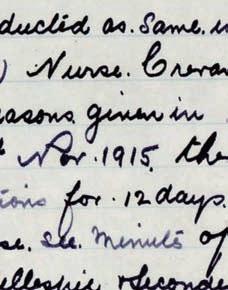 ducted as. Same.
) Nurse.
easons. given in
Nov. 1915, the
tions for. 12 days.
se. see. Minute of
illespie, seconde